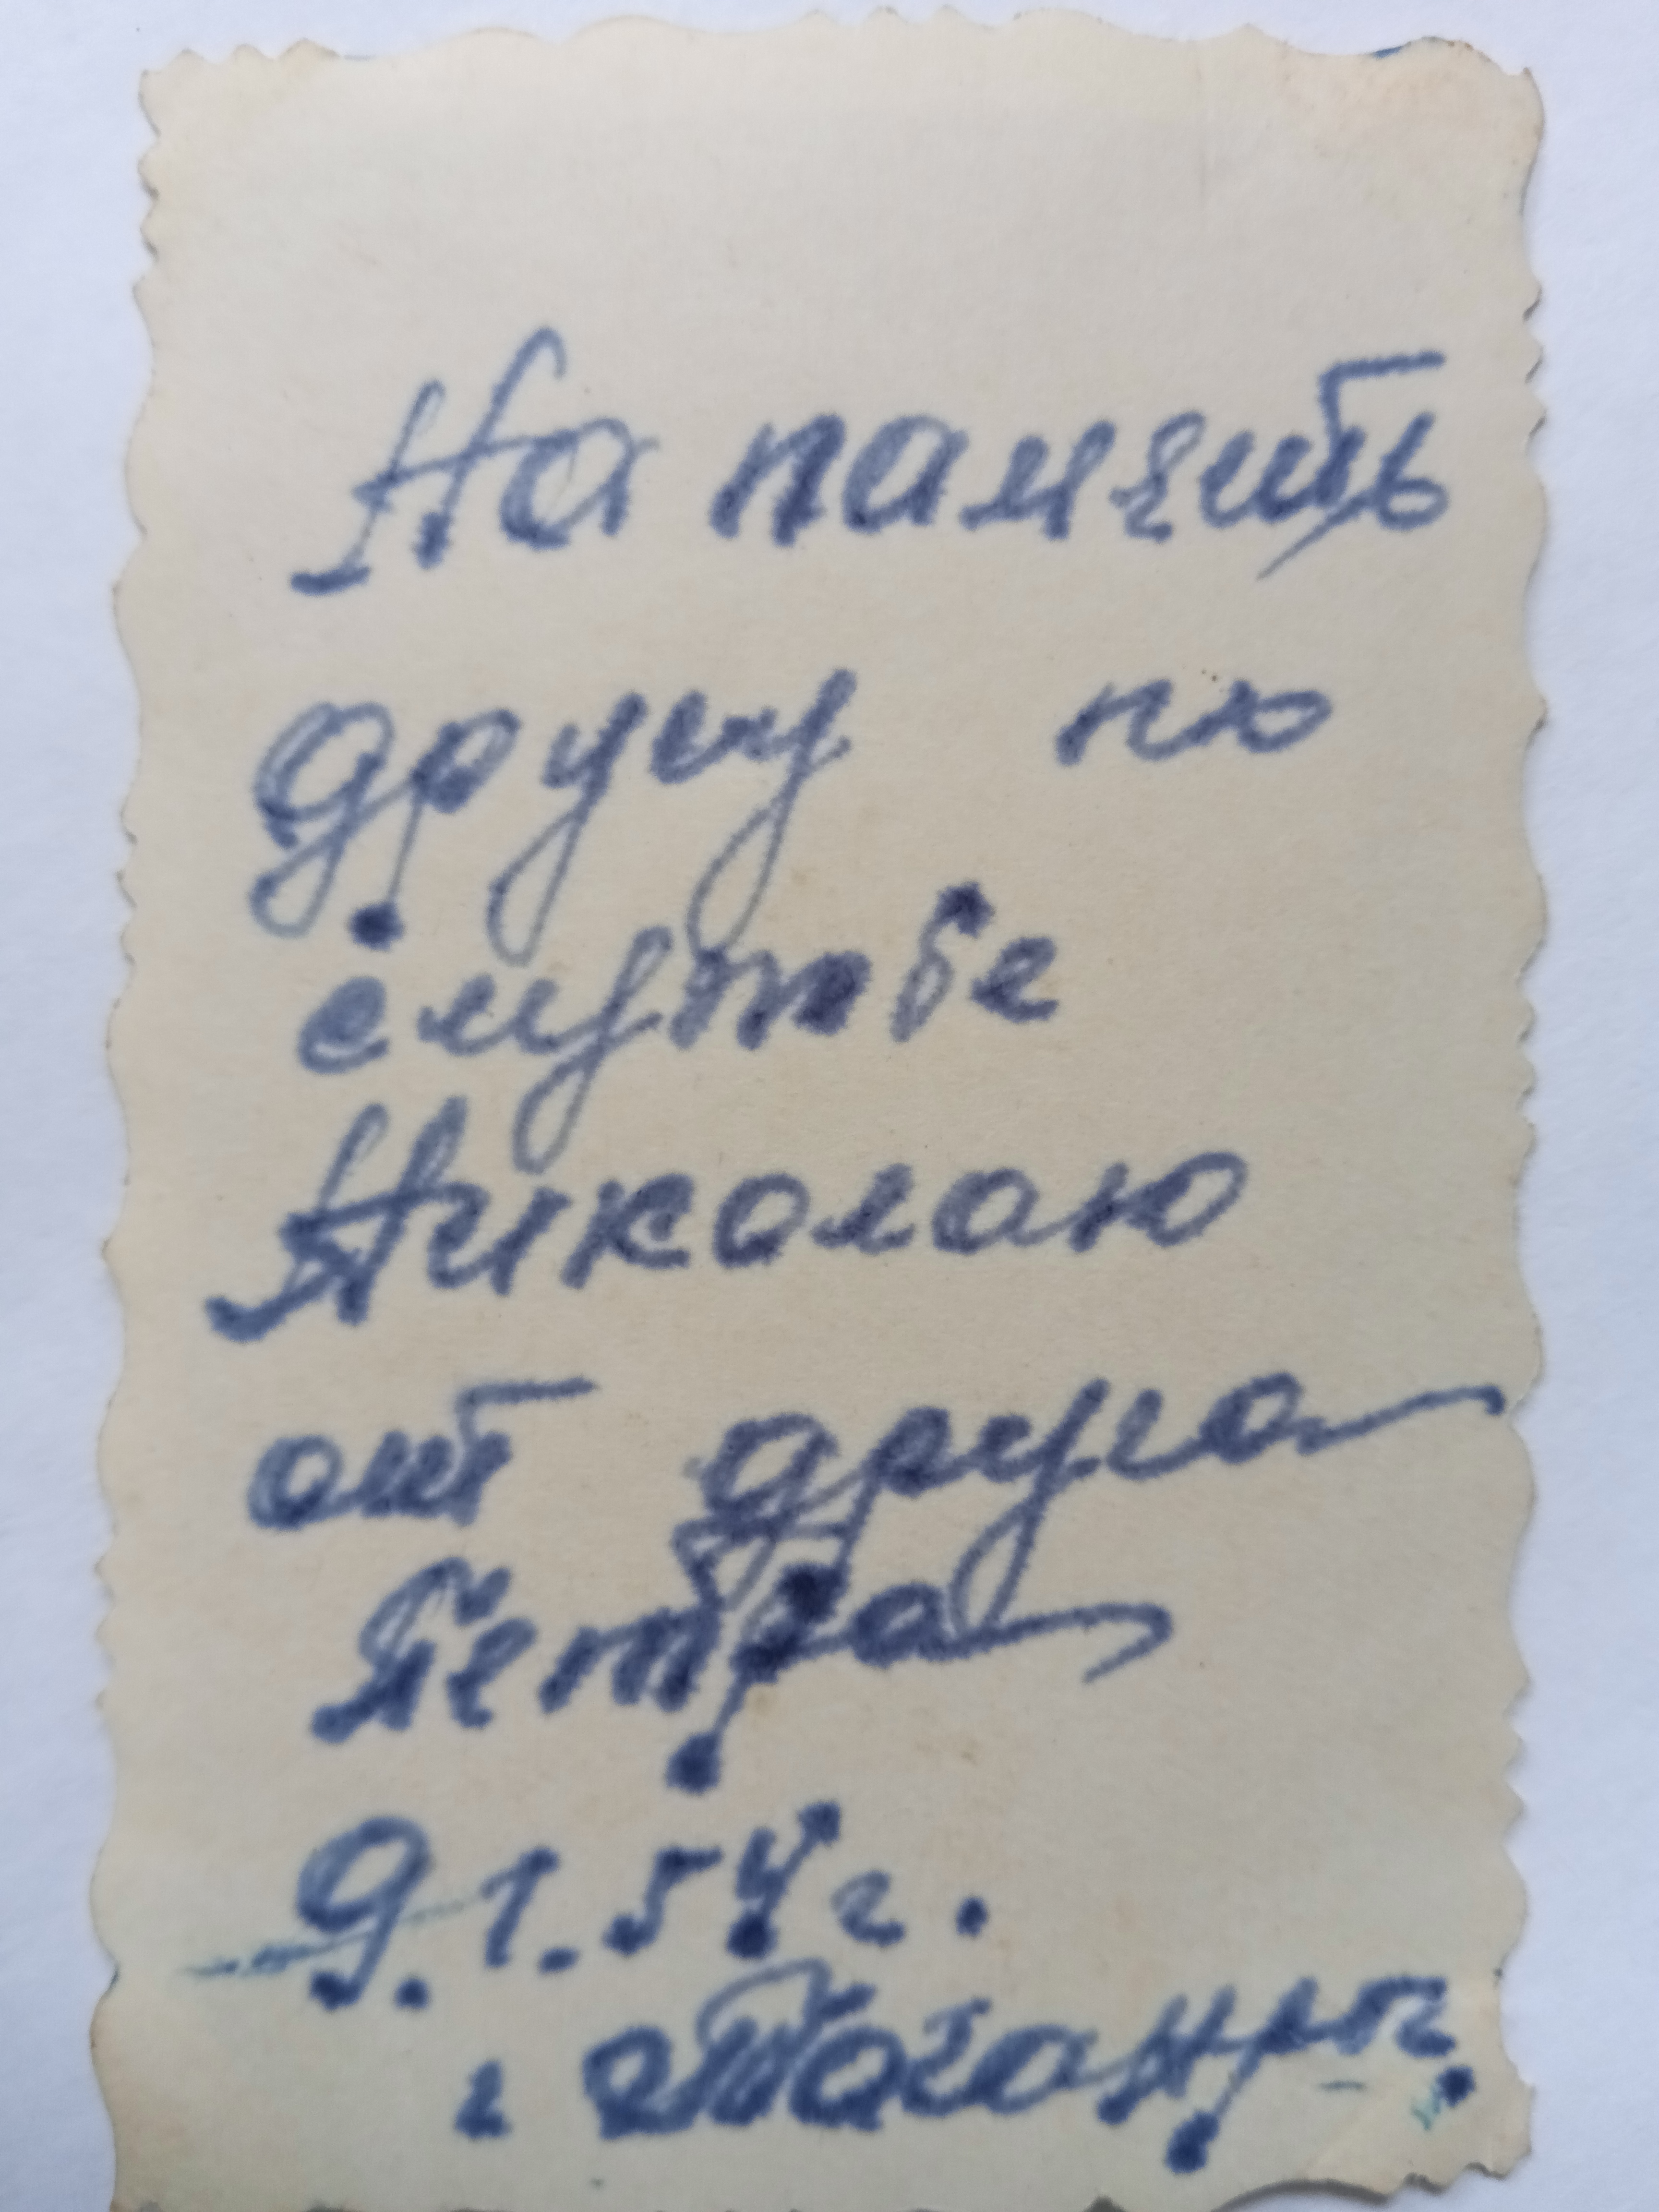 На память
другу по
службе
Николаю
от друга
Петра
9.1.54г.
г Таганрог.